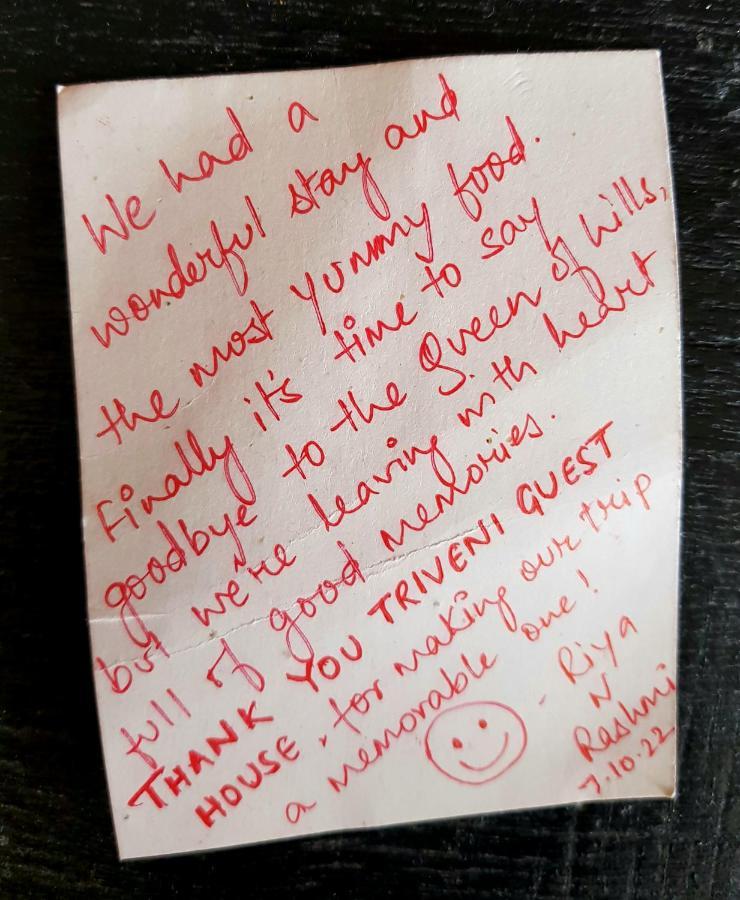 We had a
wonderful stay and
the most yummy food.
Finally it's time to say
goodbye to the Queen of hills,
but we're leaving with heart
full of good memories.
THANK YOU TRIVENI GUEST
HOUSE, for making our trip
a memorable one!
- Riya
N
Rashmi
7.10.22